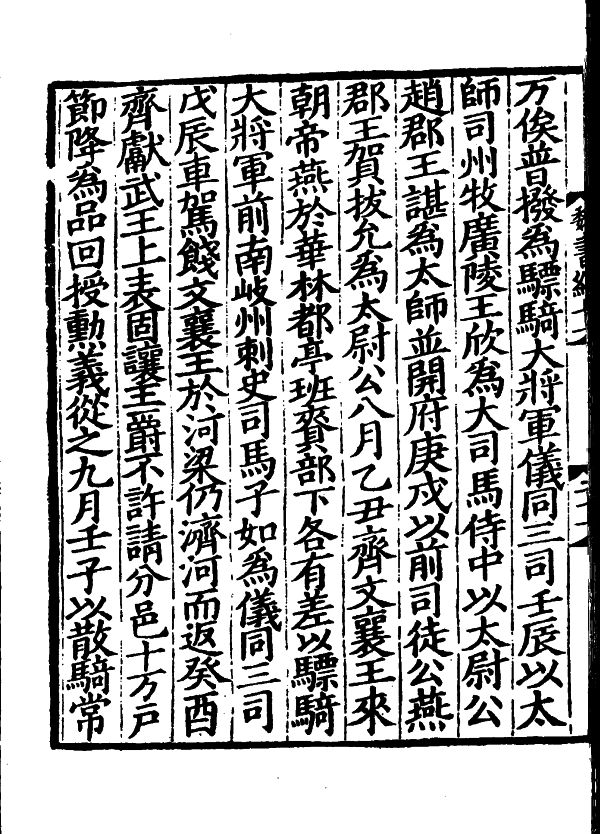 魏書紀
万俟普撥為驃騎大將軍儀同三司壬辰以太
師司州牧廣陵王欣為大司馬侍中以太尉公
趙郡王諶為太師並開府庚戌以前司徒公燕
郡王賀拔允為太尉公八月乙丑齊文襄王來
朝帝燕於華林都亭班賚部下各有差以驃騎
大將軍前南岐州刺史司馬子如為儀同三司
戊辰車駕餞文襄王於河梁仍濟河而返癸酉
齊獻武王上表固讓王爵不許請分邑十万戶
節降為品回授勳義從之九月壬子以散騎常